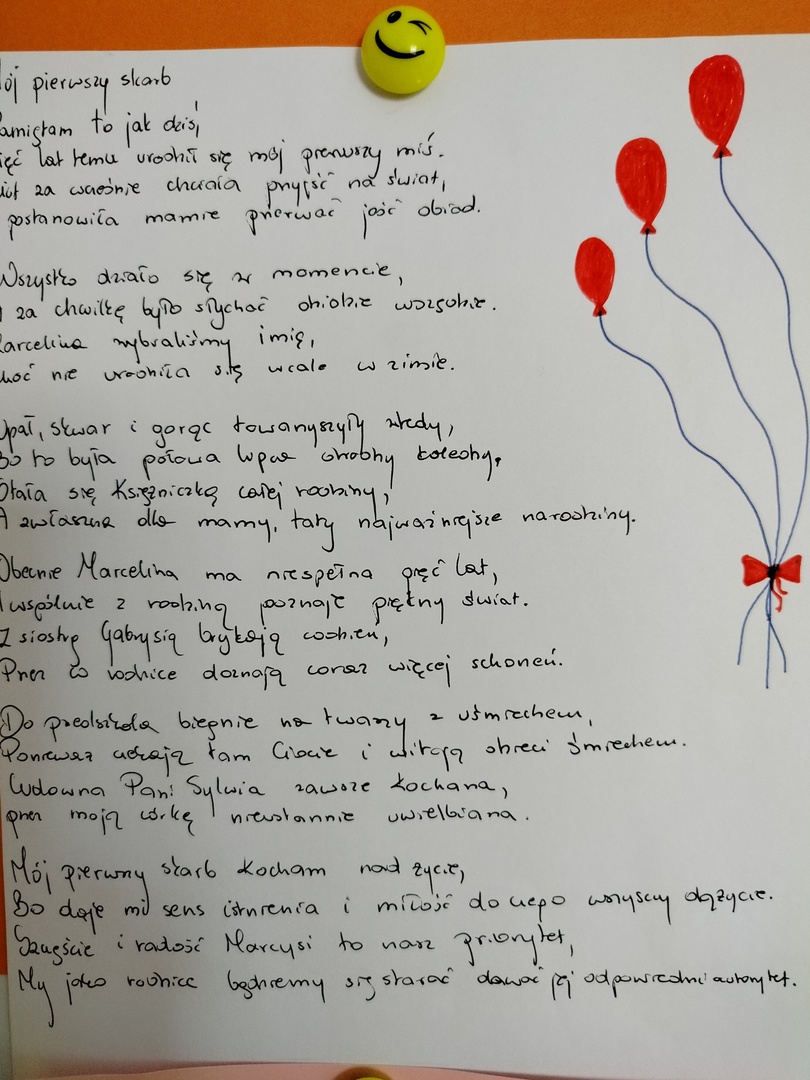 ój pierwszy skarb
amiętam to jak dziś,
ięć lat temu urodził się mój pierwszy miś.
za wcześnie chciała przyjść na świat,
postanowiła mamie przerwać jeść obiad.
Wszystko działo się w momencie,
za chwilkę było słychać
arcelina wybraliśmy imię,
hoć nie urodziła się wcale w zimie.
Upał, skwar i gorąc towarzyszyły wtedy,
Bo to była połowa lipca drodzy koledzy,
Stała się Księżniczką całej rodziny,
A zwłaszcza dla mamy, taty najważniejsze narodziny.
Obecnie Marcelina ma niespełna pięć lat,
I wspólnie z rodziną poznaje piękny świat.
Z siostrą Gabrysią brykają codzień,
Przez co rodzice doznają coraz więcej schorzeń.
Do przedszkola biegnie na twarzy z uśmiechem,
Ponieważ czekają tam Ciocie i witają dzieci śmiechem.
Cudowna Pani Sylwia zawsze kochana,
przez moją córkę nieustannie uwielbiana.
Mój pierwszy skarb kocham nad życie,
Bo daje mi sens istnienia i miłość do czego wszyscy dążycie.
Szczęście i radość Marcysi to nasz priorytet,
My jako rodzice będziemy się starać dawać jej odpowiedni autorytet.